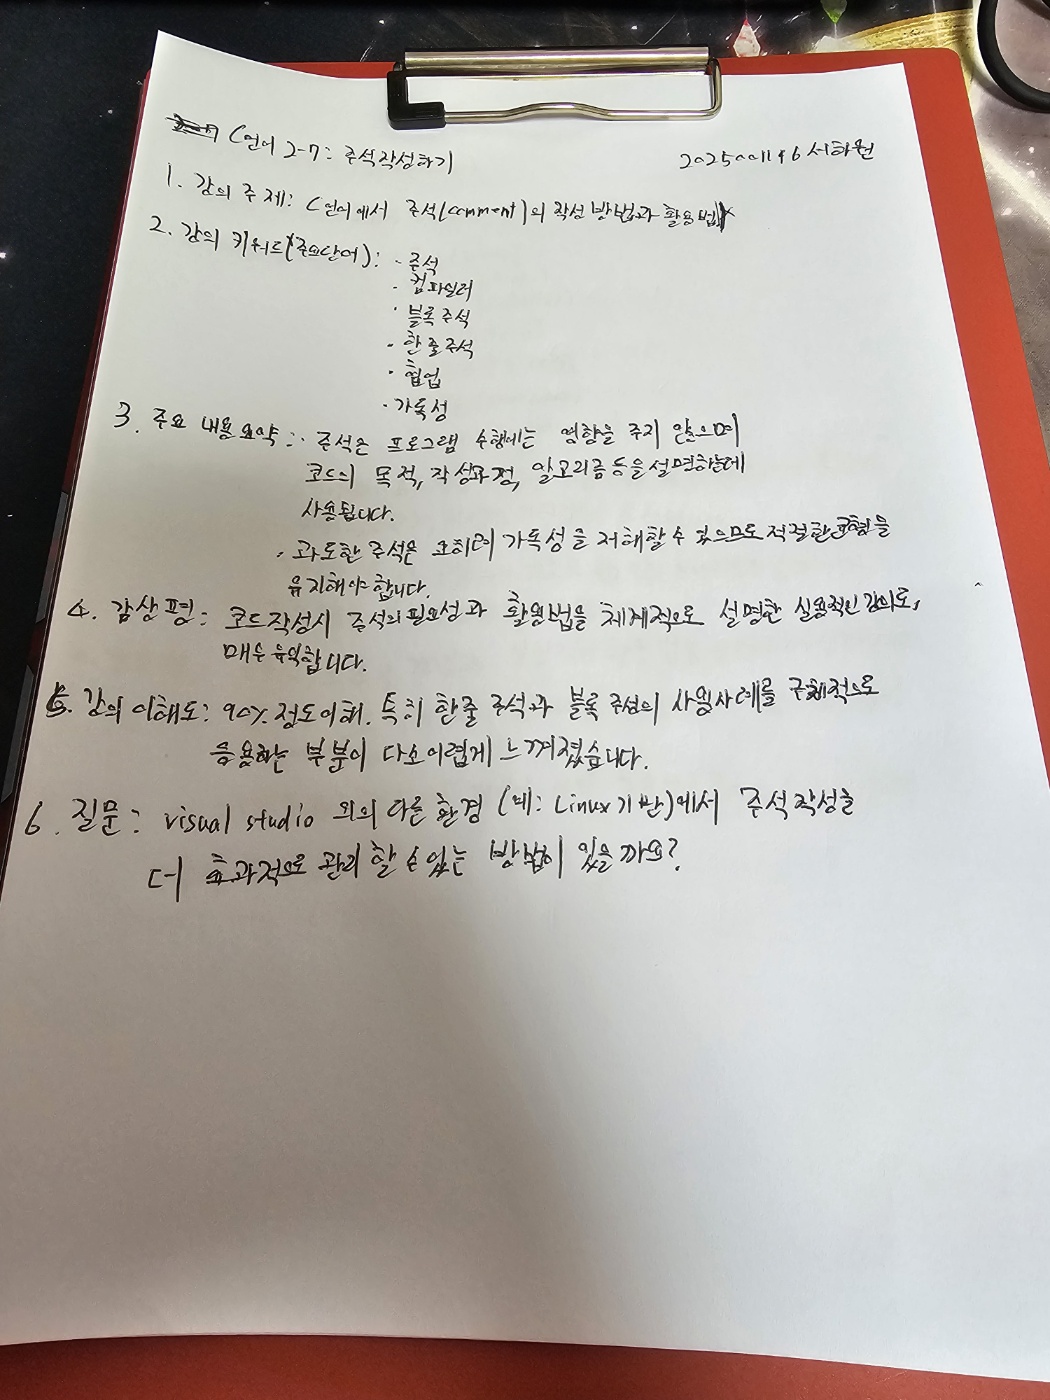 C언어 2-7: 주석작성하기
2025001196 서하원
1. 강의 주제: C언어에서 주석(comment)의 작성 방법과 활용법
2. 강의 키워드(주요단어): · 주석
· 컴파일러
· 블록 주석
· 한 줄 주석
· 협업
· 가독성
3. 주요 내용 요약: · 주석은 프로그램 수행에는 영향을 주지 않으며
코드의 목적, 작성과정, 알고리즘 등을 설명하는데
사용됩니다.
· 과도한 주석은 오히려 가독성을 저해할 수 있으므로 적절한 균형을
유지해야 합니다.
4. 감상평: 코드 작성시 주석의 필요성과 활용법을 체계적으로 설명한 실용적인 강의로,
매우 유익합니다.
5. 강의 이해도: 90% 정도 이해. 특히 한 줄 주석과 블록 주석의 사용사례를 구체적으로
응용하는 부분이 다소 어렵게 느껴졌습니다.
6. 질문: visual studio 외의 다른 환경 (예: Linux 기반)에서 주석 작성을
더 효과적으로 관리 할 수 있는 방법이 있을까요?